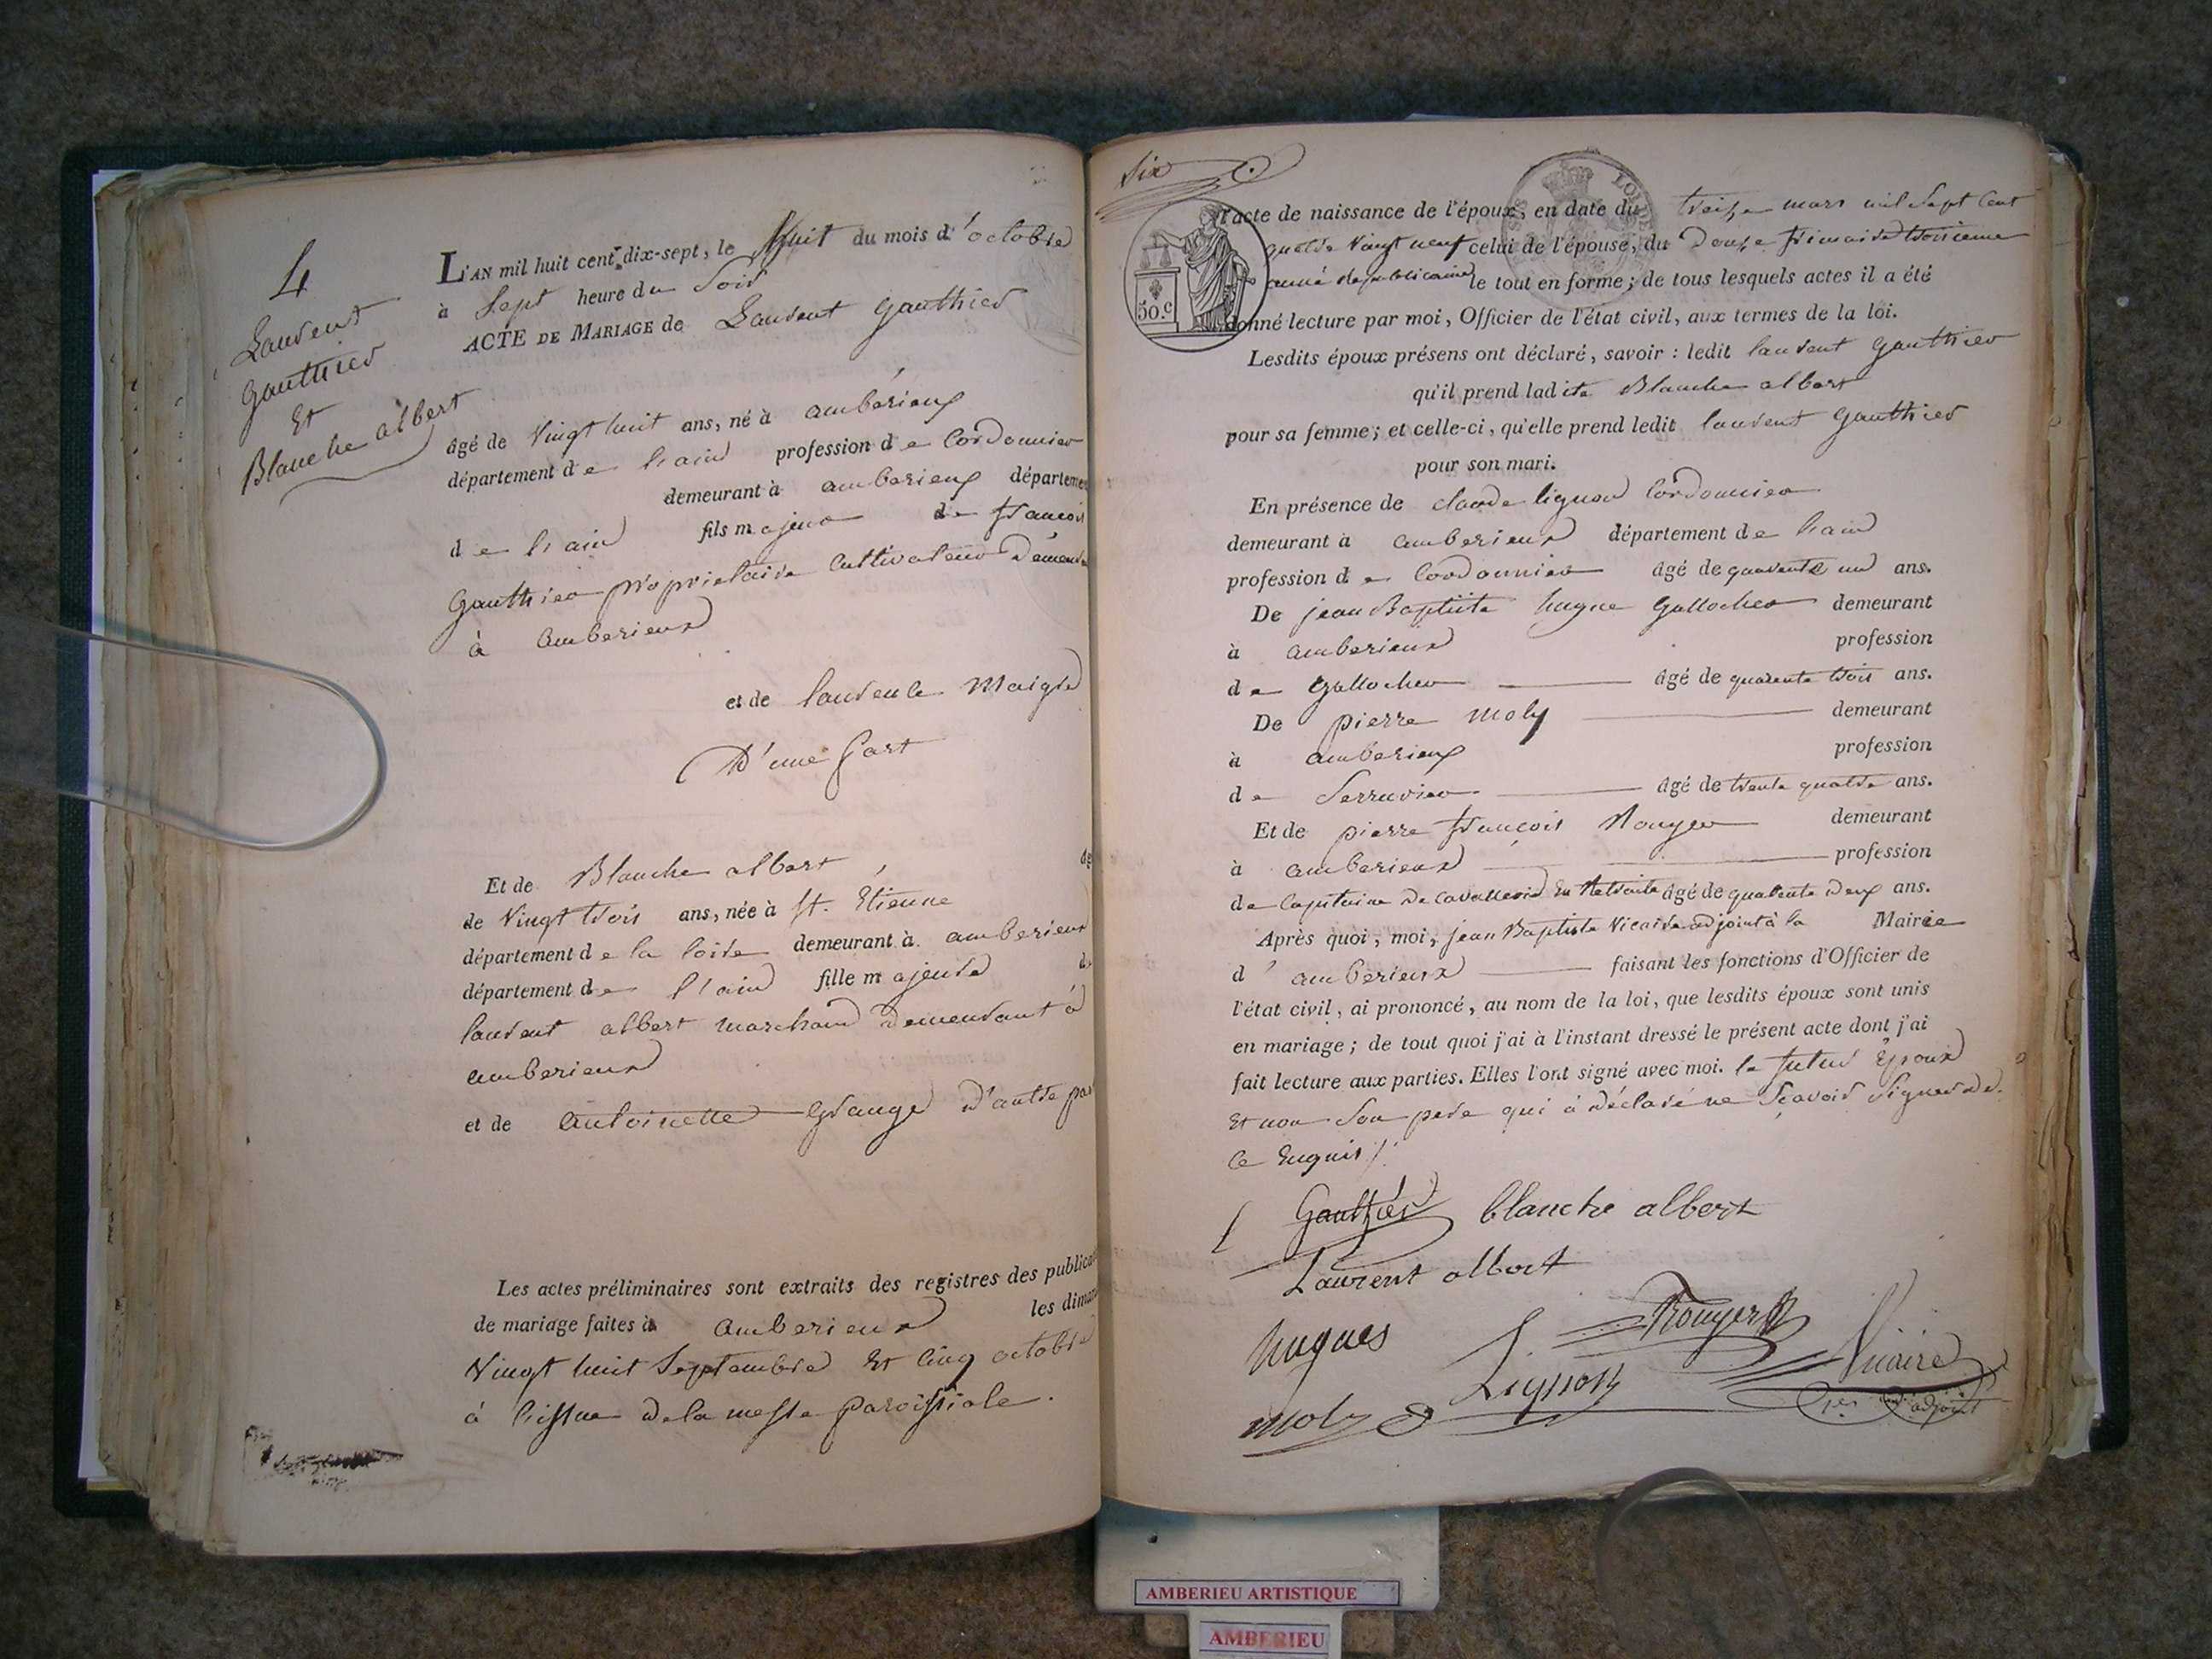 4
Laurent
Gauthier
Et
Blanche albert
L'AN mil huit cent dix-sept, le huit du mois d'octobre
à Sept heure du Soir
ACTE DE MARIAGE de Laurent Gauthier
âgé de Vingt huit ans, né à ambérieux
département de l'ain profession de Cordonnier
demeurant à amberieux départeme
de l'ain fils majeur de françois
Gauthier propriétaire Cultivateur Demeura
à amberieux
et de laurence Maigre
D'une part
Et de Blanche albert âg
de Vingt trois ans, née à St. Étienne
département de la loire demeurant à amberieux
département de l'ain fille majeure de
laurent albert marchand demeurant à
amberieux
et de antoinette Grange d'autre par
Les actes préliminaires sont extraits des registres des publica
de mariage faites à amberieux les diman
Vingt huit Septembre Et Cinq octobre
à l'issue de la messe paroissiale.
Six
l'acte de naissance de l'époux, en date du treize mars mil Sept Cent
quatre Vingt neuf celui de l'épouse, du Douze frimaire troisieme
année Republicaine le tout en forme; de tous lesquels actes il a été
50.c
donné lecture par moi, Officier de l'état civil, aux termes de la loi.
Lesdits époux présens ont déclaré, savoir : ledit laurent Gauthier
qu'il prend ladite Blanche albert
pour sa femme; et celle-ci, qu'elle prend ledit laurent Gauthier
pour son mari.
En présence de claude lignon Cordonnier
demeurant à amberieux département de l'ain
profession de Cordonnier âgé de quarente un ans.
De jean Baptiste hugue Gallocher demeurant
à amberieux profession
de Gallocher âgé de quarente trois ans.
De pierre moly demeurant
à amberieux profession
de Serrurier âgé de trente quatre ans.
Et de pierre françois Rouyer demeurant
à amberieux profession
de Capitaine de Cavallerie En Retraite âgé de quarente deux ans.
Après quoi, moi, jean Baptiste Vicaire adjoint à la Mairie
d'amberieux faisant les fonctions d'Officier de
l'état civil, ai prononcé, au nom de la loi, que lesdits époux sont unis
en mariage; de tout quoi j'ai à l'instant dressé le présent acte dont j'ai
fait lecture aux parties. Elles l'ont signé avec moi. le futur Époux
Et non Son pere qui à déclaré ne Sçavoir Signer de
Ce Enquis
Gauthier blanche albert
Laurent albert
hugues Rouyer Vicaire
moly Lignon 1er adjoint
AMBERIEU ARTISTIQUE
AMBERIEU